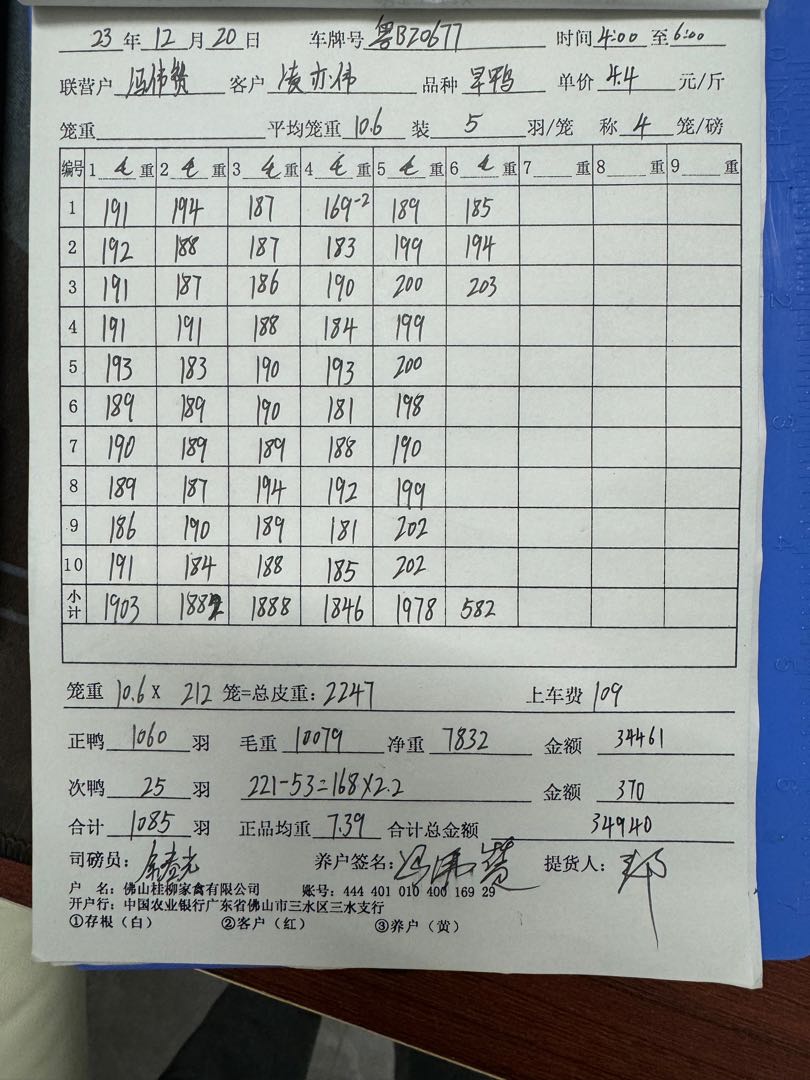 23 年 12 月 20 日 车牌号 粤BZ0677 时间 4:00 至 6:00
联营户 冯伟赞 客户 凌亦伟 品种 旱鸭 单价 4.4 元/斤
笼重 平均笼重 10.6 装 5 羽/笼 称 4 笼/磅
编号 1 毛 重 2 毛 重 3 毛 重 4 毛 重 5 毛 重 6 毛 重 7 重 8 重 9 重
1 191 194 187 169-2 189 185
2 192 188 187 183 199 194
3 191 187 186 190 200 203
4 191 191 188 184 199
5 193 183 190 193 200
6 189 189 190 181 198
7 190 189 189 188 190
8 189 187 194 192 199
9 186 190 189 181 202
10 191 184 188 185 202
小计 1903 1882 1888 1846 1978 582
笼重 10.6 X 212 笼=总皮重: 2247 上车费 109
正鸭 1060 羽 毛重 10079 净重 7832 金额 34461
次鸭 25 羽 221-53=168X2.2 金额 370
合计 1085 羽 正品均重 7.39 合计总金额 34940
司磅员: 养户签名: 冯伟赞 提货人:
户 名: 佛山桂柳家禽有限公司 账号: 444 401 010 400 169 29
开户行: 中国农业银行广东省佛山市三水区三水支行
①存根（白） ②客户（红） ③养户（黄）